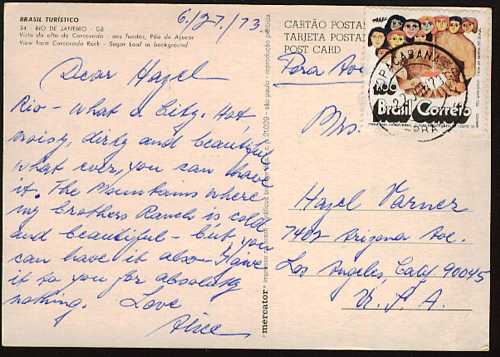 BRASIL TURÍSTICO
34 - RIO DE JANEIRO - GB
Vista do alto do Corcovado - aos fundos, Pão de Açucar
View from Corcovado Rock - Sugar Loaf in background
6/27/73
Dear Hazel
Rio - What a City. Hot,
noisy, dirty and beautiful
what ever, you can have
it. The Mountains where
my brothers Ranch is cold
and beautiful - but you
can have it also - I give
it to you for absolutely
nothing. Love
Alice
mercator
são paulo - reprodução proibida
CARTÃO POSTAL
TARJETA POSTAL
POST CARD
COPACABANA
Brasil Correio
Mrs.
Hazel Varner
7402 Arizona Ave.
Los Angeles, Calif. 90045
U. S. A.